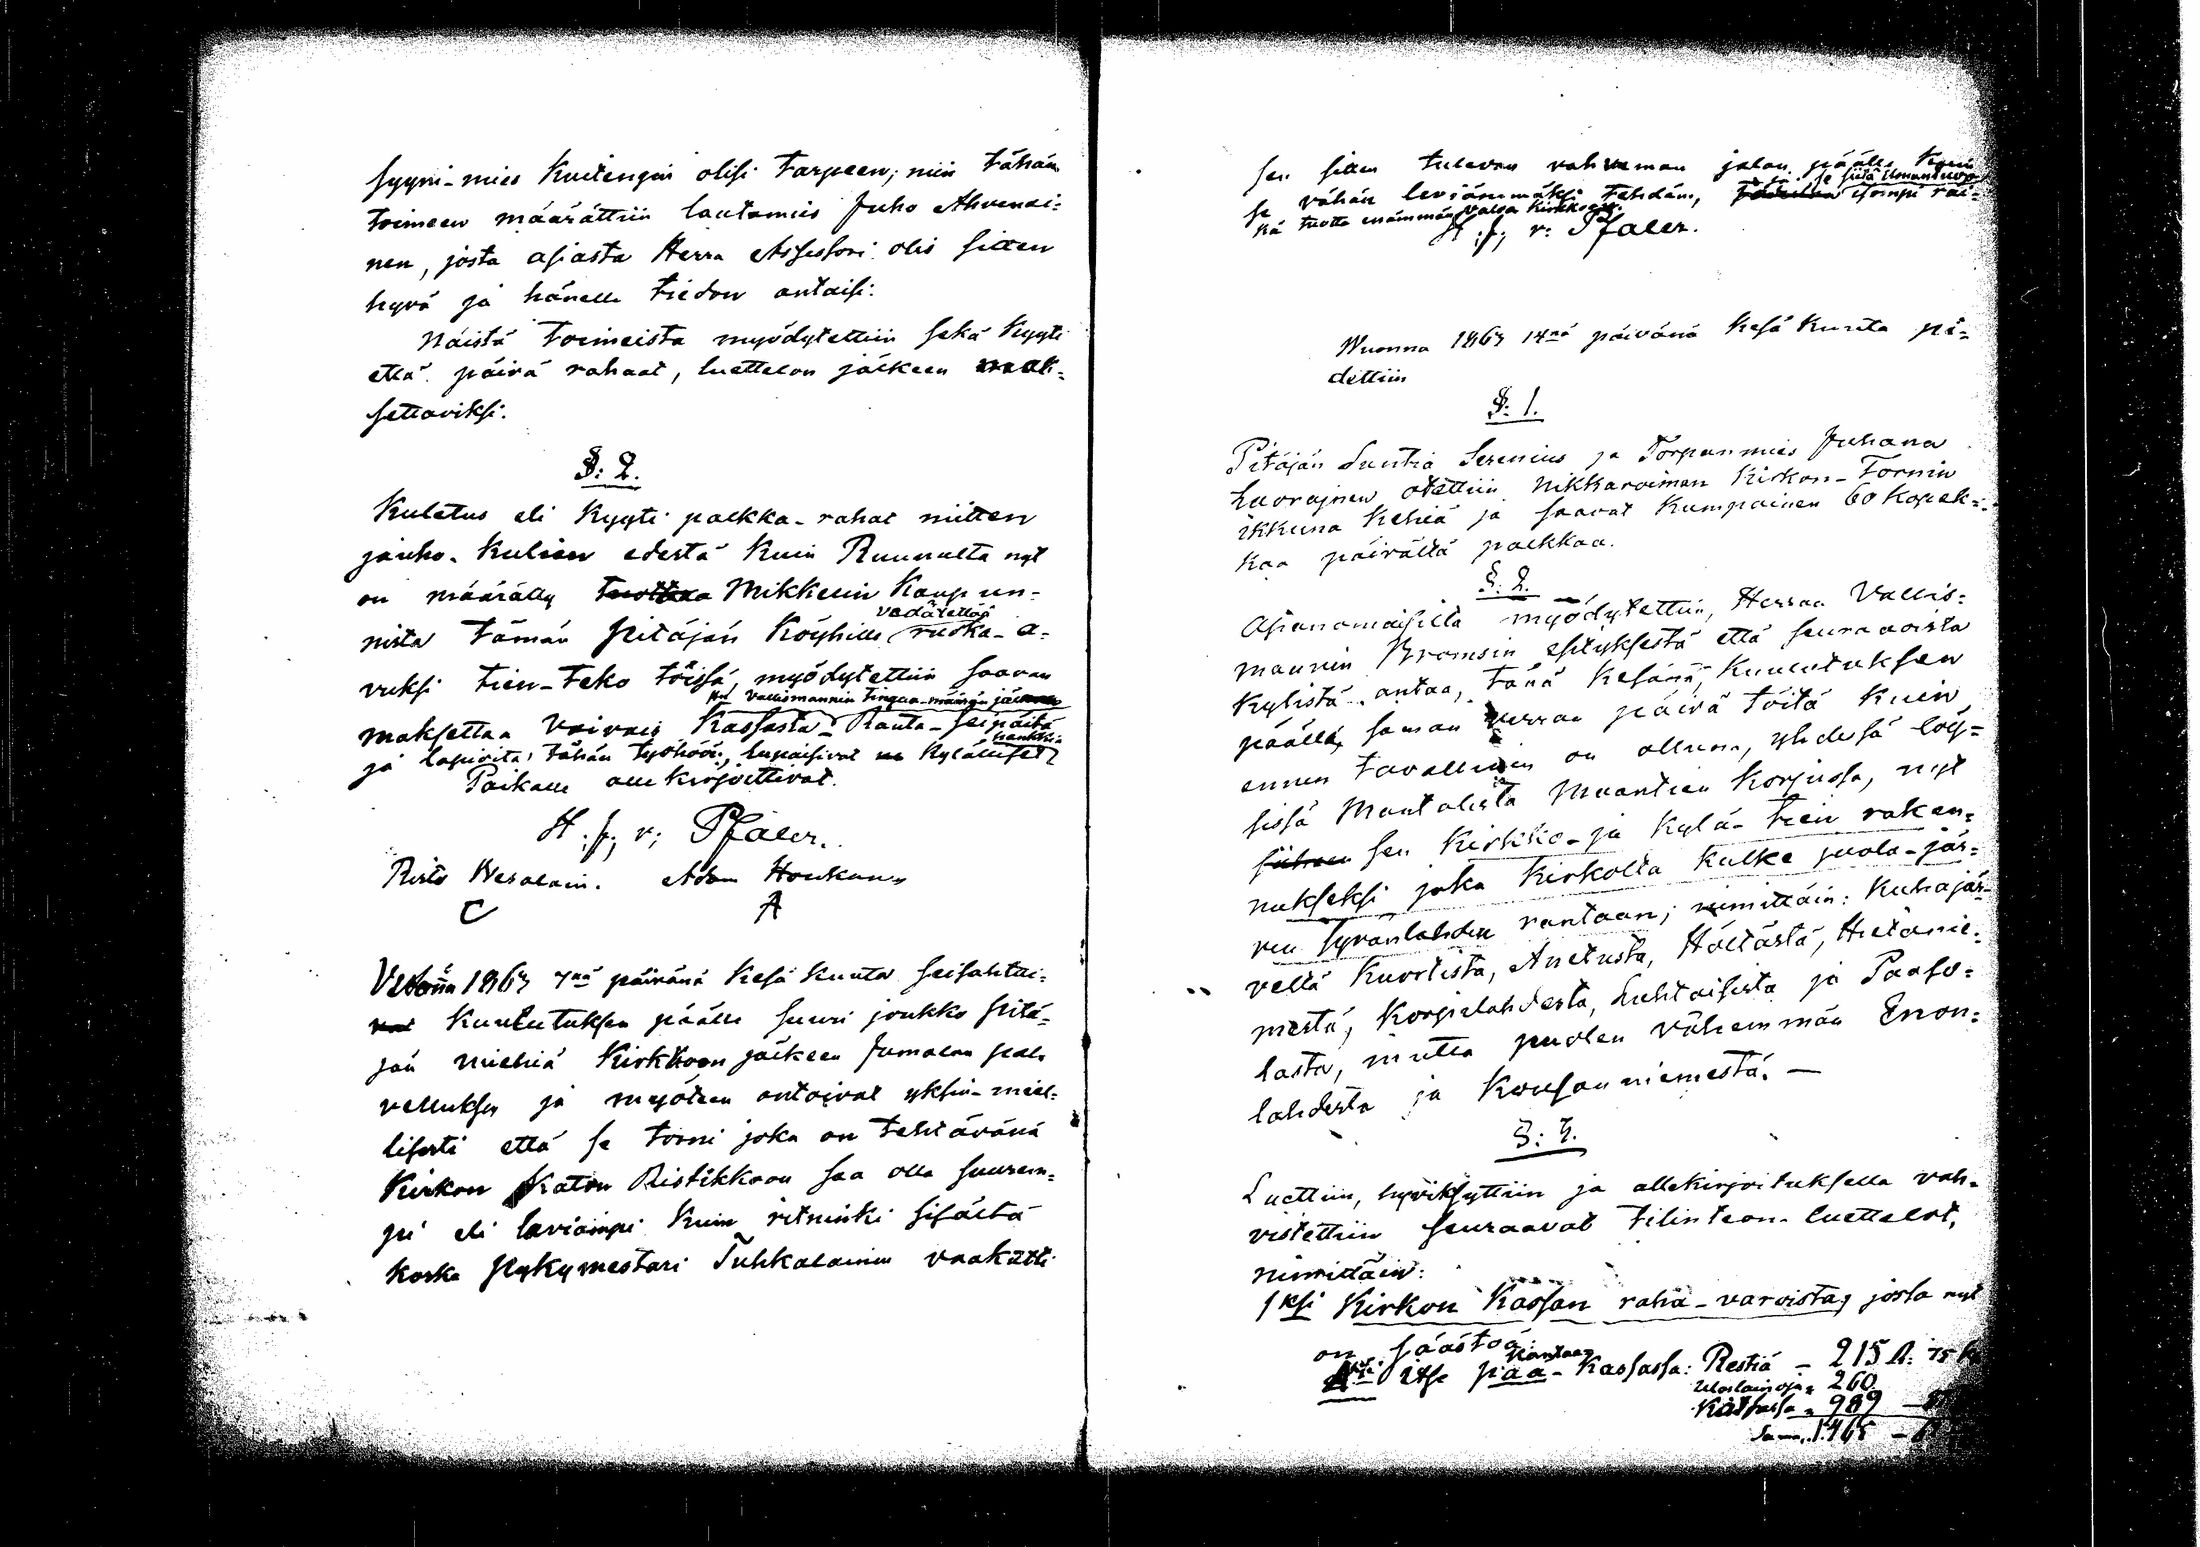 syyni-mies kuitengin olisi tarpeen; niin tähän
toimeen määrättiin lautamies Juho Ahvenai-
nen, josta asiasta Herra Assessori olis sitten
hyvä ja hänelle tiedon antaisi:
Näistä toimeista myödytettiin sekä kyyti
että päivä rahaat, luettelon jälkeen mak-
settaviksi.
§: 2.
Kuletus eli kyyti palkka-rahat niitten
jauho-kulien edestä kuin Ruunulta nyt
on määrätty tuottaa Mikkelin Kaupun-
vedätettää
nista tämän pitäjän köyhille ruoka-a-
vuksi tien-teko töissä, myödytettiin saavan
Hrl Vallismannin tingaa-määrän
maksettaa Vaivais Kassasta - Rauta-seipäitä
hankki-
ja lapioita tähän työhöön, lupaisivat kyläläiset
Paikalle alle kirjoittivat.
H. f; v; Pfaler.
Risto Wesalain. Adam Houkan
C A
1863 7nä päivänä Kesä kuuta seisahtui-
vat kuulutuksen päälle suuri joukko pitä-
jän miehiä Kirkkoon jälkeen Jumalan pal-
velluksen ja myöteen antoivat yksin-miel-
lisesti että se torni joka on tehtävänä
Kirkon katon Ristikkoon saa olla suurem-
pi eli laviampi kuin ritninki sisältä
koska pykymestari Tuhkalainen vaakutti
sen siten tulevan vahvemman jalan päälle kuin
se siitä ilman
se vähän leviämmäksi tehdään, isompi räi-
kä tuotta enämmän valoa Kirkkoon.
H. f; v: Pfaler.
Wuonna 1863 14nä päivänä Kesä Kuuta pi-
dettiin
§: 1.
Pitäjän Suntia Serenius ja Torpanmies Juhana
Luorajnen otettiin nikkaroiman Kirkon-Tornin
ikkuna kehiä ja saavat kumpainen 60 kopek-
kaa päivältä palkkaa.
§: 2.
Asianomaisilta myödytettiin, Herran Vallis-
mannin Bromsin esityksestä että seuraavista
kylistä antaa, tänä kesänä, kuulutuksen
päälle, saman verran päivä töitä kuin
ennen tavallinen on ollunna, yhdesä löy-
sissä Mantalista Maantien korjussa, nyt
siihen sen Kirkko-ja kylä-tien raken-
nukseksi joka kirkolta kulke puola-jär-
ven syvänlahden rantaan; nimittäin: Kuhajär-
veltä Kuortista, Anetusta, Hältästä, Hietanie-
mestä, Korpielahdesta, Luhtaisista ja Paaso-
lasta, mutta puolen vähemmän Enon-
lahdesta ja Kousanniemestä. —
§: 3.
Luettiin, hyväksyttiin ja allekirjoituksella vah-
vistettiin seuraavat tilinteon-luettelot,
nimittäin:
1ksi Kirkon Kassan raha-varoista, josta nyt
on säästöä
Kantaa
itse pää-Kassassa: Restiä - 215 R: 75 k
Uloslainoja „ 260
Kassassa „ 989
Suma„ 1465